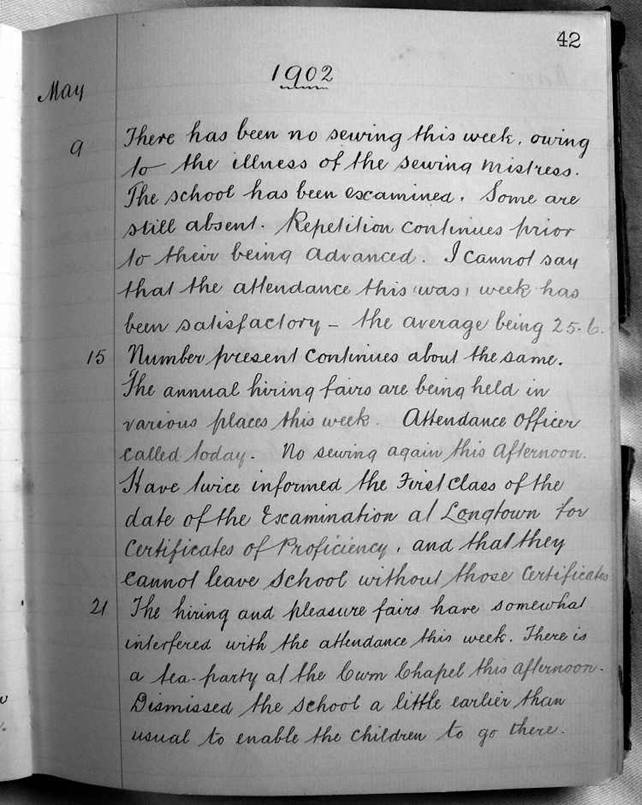 42
1902
May
9 There has been no sewing this week, owing
to the illness of the sewing mistress.
The school has been examined. Some are
still absent. Repetition continues prior
to their being advanced. I cannot say
that the attendance this (was) week has
been satisfactory – the average being 25.6.
15 Number present continues about the same.
The annual hiring fairs are being held in
various places this week. Attendance Officer
called today. No sewing again this afternoon.
Have twice informed the First Class of the
date of the Examination at Longtown for
Certificates of Proficiency, and that they
cannot leave School without those Certificates
21 The hiring and pleasure fairs have somewhat
interfered with the attendance this week. There is
a tea-party at the Cwm Chapel this afternoon.
Dismissed the school a little earlier than
usual to enable the children to go there.